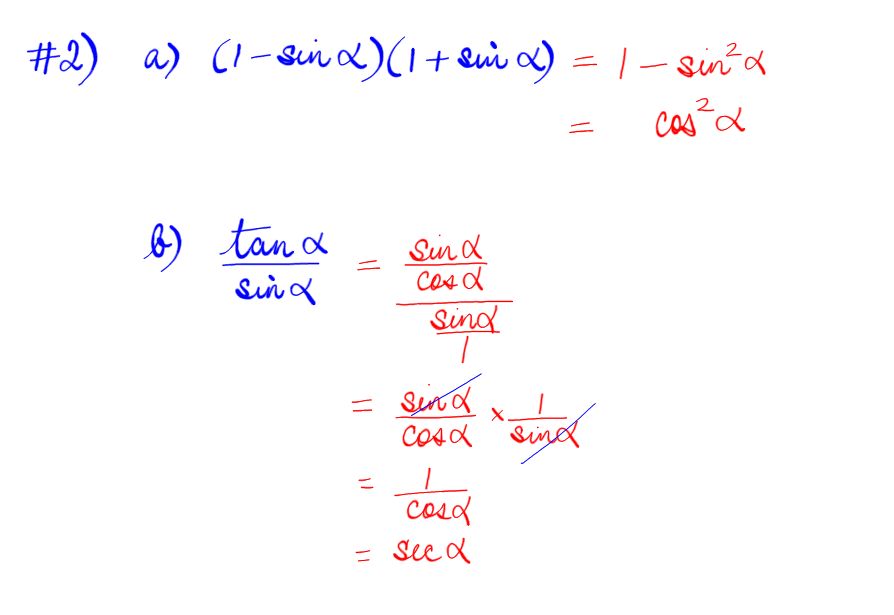 #2) a) (1 - sin α)(1 + sin α) = 1 - sin²α
= cos²α
b) tan α / sin α = (sin α / cos α) / (sin α / 1)
= sin α / cos α × 1 / sin α
= 1 / cos α
= sec α